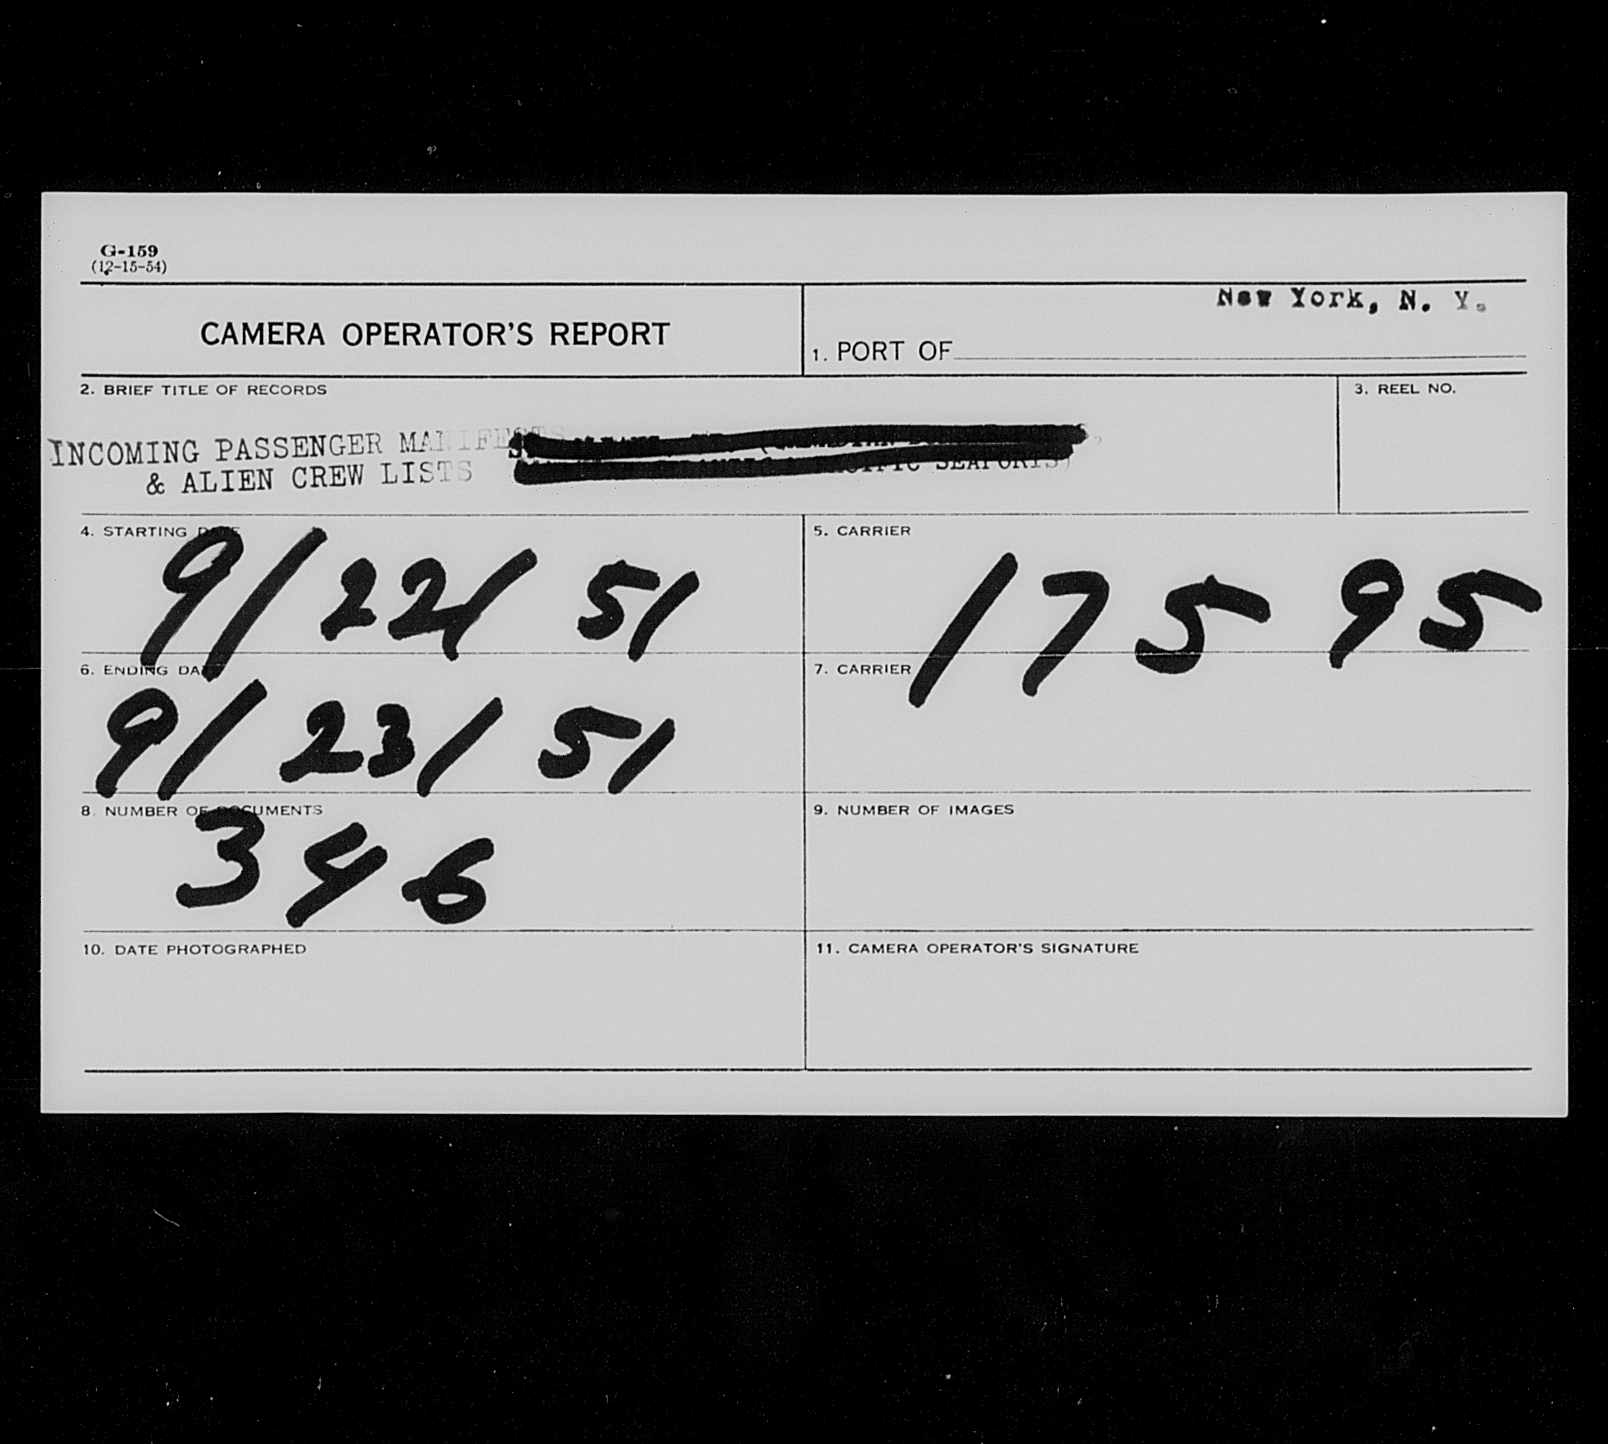 G-159
(12-15-54)
CAMERA OPERATOR'S REPORT
New York, N. Y.
1. PORT OF
2. BRIEF TITLE OF RECORDS
3. REEL NO.
INCOMING PASSENGER MANIFESTS
& ALIEN CREW LISTS
SEAPORTS)
4. STARTING DATE
9/22/51
5. CARRIER
17595
6. ENDING DATE
9/23/51
7. CARRIER
8. NUMBER OF DOCUMENTS
346
9. NUMBER OF IMAGES
10. DATE PHOTOGRAPHED
11. CAMERA OPERATOR'S SIGNATURE